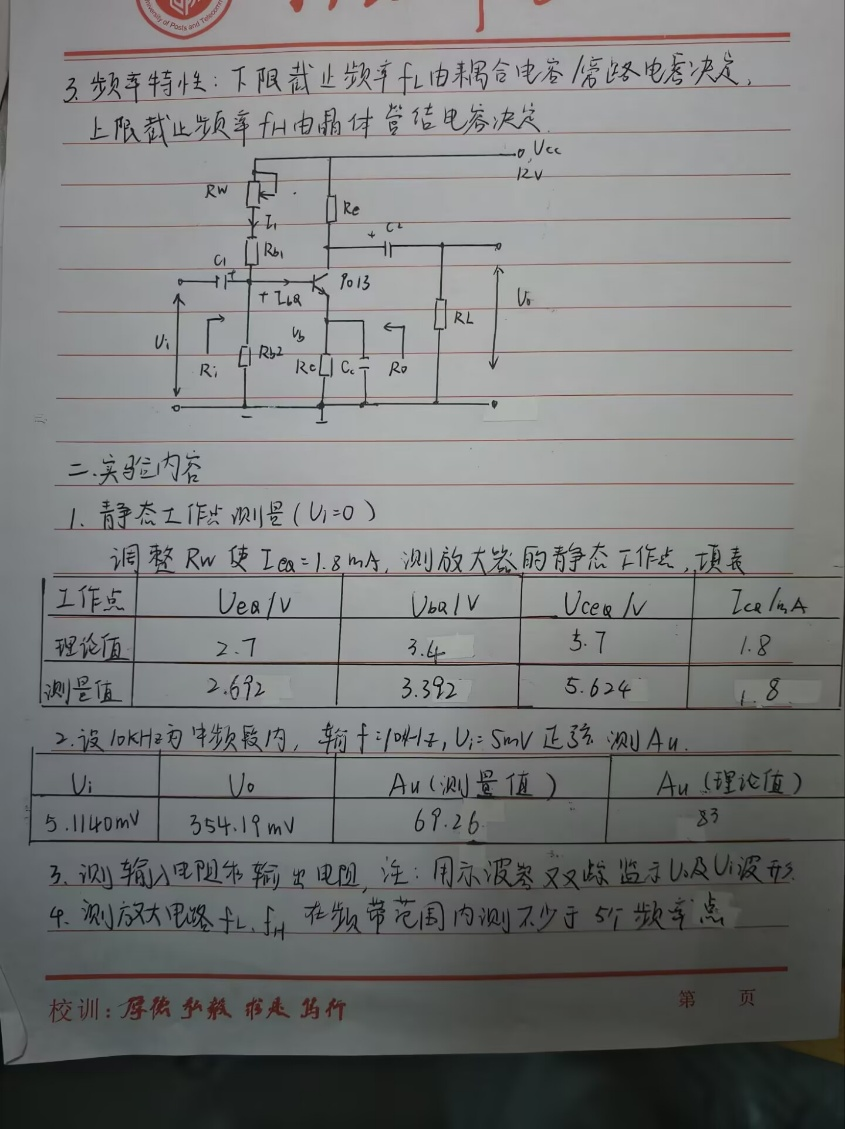 University of Posts and Telecom
3. 频率特性：下限截止频率fL由耦合电容/旁路电容决定,
上限截止频率fH由晶体管结电容决定.
Ucc
12V
RW
Re
I1
C2
Rb1
C1
9013
+ IbQ
U0
RL
Ui
Vb
Ri
Rb2
Re
Cc
Ro
二.实验内容
1. 静态工作点测量(Ui=0)
调整RW使Ieq=1.8mA, 测放大器的静态工作点,填表
工作点 UeQ/V UbQ/V UceQ/V IcQ/mA
理论值 2.7 3.4 5.7 1.8
测量值 2.692 3.392 5.624 1.8
2.设10KHz为中频段内, 输f=10kHz, Ui=5mV正弦 测Au.
Ui Uo Au(测量值) Au(理论值)
5.1140mV 354.19mV 69.26 83
3. 测输入电阻和输出电阻, 注: 用示波器双踪监示Uo及Ui波形.
4. 测放大电路fL、fH 在频带范围内测不少于5个频率点
校训: 厚德 弘毅 求是 笃行
第 页